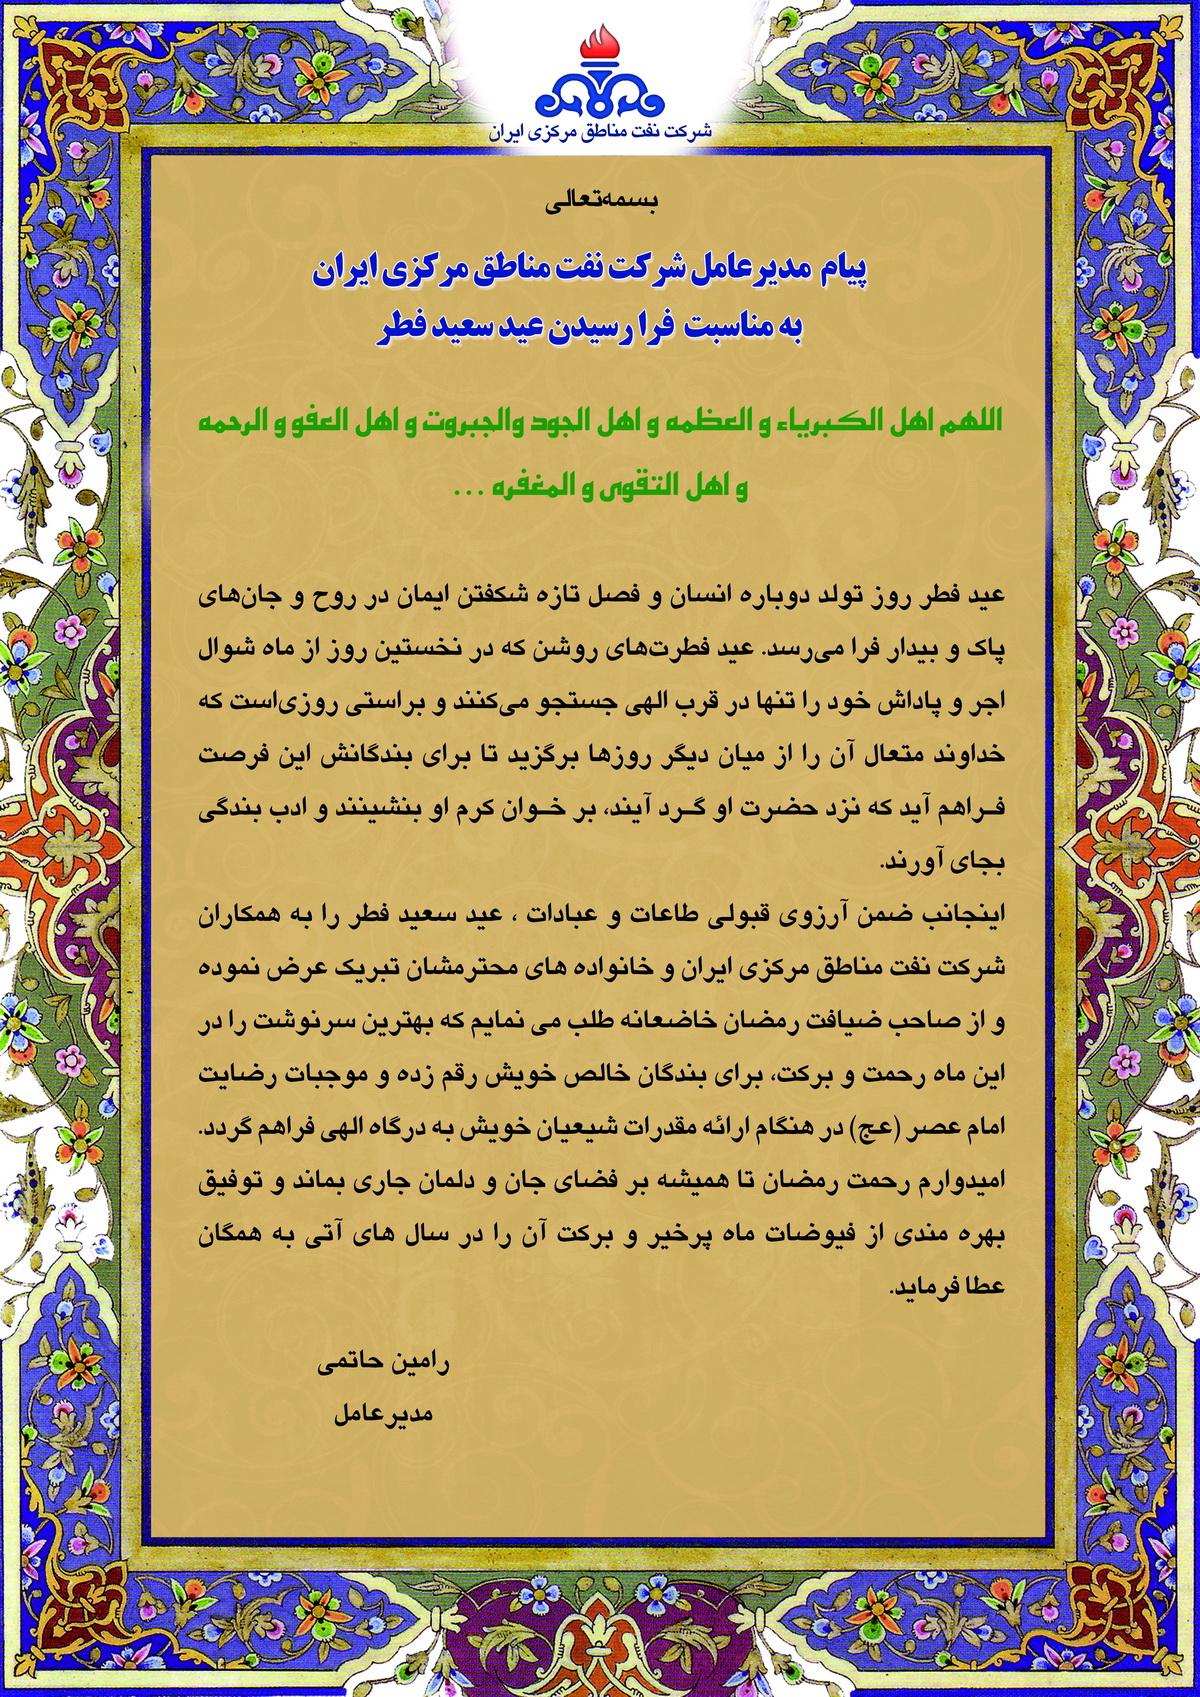 شرکت نفت مناطق مرکزی ایران
بسمه‌تعالی
پیام مدیرعامل شرکت نفت مناطق مرکزی ایران
به مناسبت فرا رسیدن عید سعید فطر
اللهم اهل الکبریاء و العظمه و اهل الجود والجبروت و اهل العفو و الرحمه
و اهل التقوی و المغفره ...
عید فطر روز تولد دوباره انسان و فصل تازه شکفتن ایمان در روح و جان‌های
پاک و بیدار فرا می‌رسد. عید فطرت‌های روشن که در نخستین روز از ماه شوال
اجر و پاداش خود را تنها در قرب الهی جستجو می‌کنند و براستی روزی‌است که
خداوند متعال آن را از میان دیگر روزها برگزید تا برای بندگانش این فرصت
فـراهم آید که نزد حضرت او گـرد آیند، بر خـوان کرم او بنشینند و ادب بندگی
بجای آورند.
اینجانب ضمن آرزوی قبولی طاعات و عبادات ، عید سعید فطر را به همکاران
شرکت نفت مناطق مرکزی ایران و خانواده های محترمشان تبریک عرض نموده
و از صاحب ضیافت رمضان خاضعانه طلب می نمایم که بهترین سرنوشت را در
این ماه رحمت و برکت، برای بندگان خالص خویش رقم زده و موجبات رضایت
امام عصر (عج) در هنگام ارائه مقدرات شیعیان خویش به درگاه الهی فراهم گردد.
امیدوارم رحمت رمضان تا همیشه بر فضای جان و دلمان جاری بماند و توفیق
بهره مندی از فیوضات ماه پرخیر و برکت آن را در سال های آتی به همگان
عطا فرماید.
رامین حاتمی
مدیرعامل